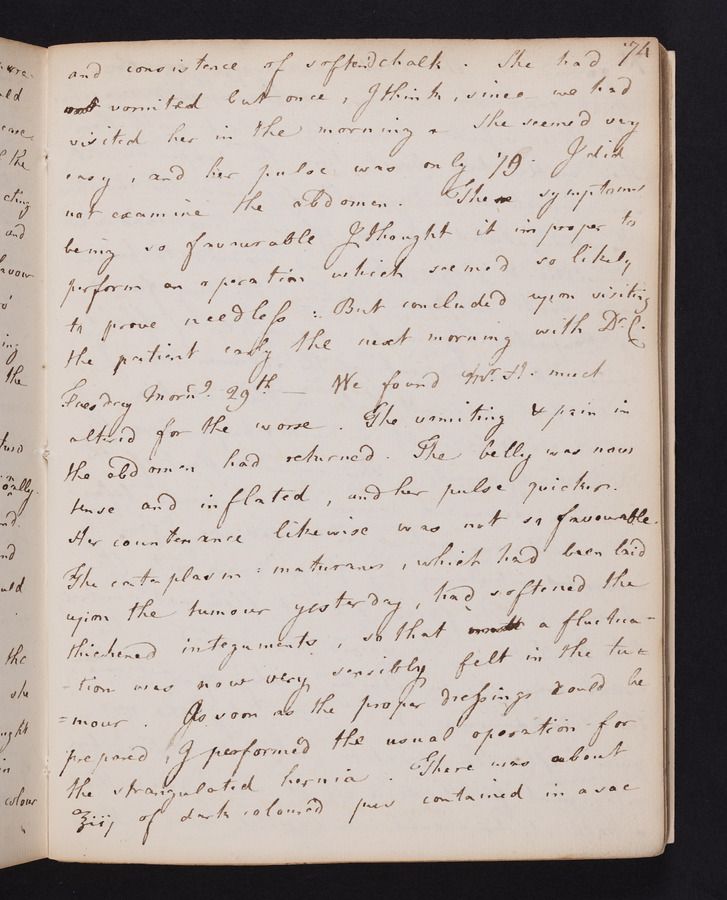 74
and consistence of softend chalk. She had
vomited but once, I think, since we had
visited her in the morning & she seemed very
easy, and her pulse was only 78. I did
not examine the abdomen. These symptoms
being so favourable I thought it improper to
perform an operation which seemed so likely
to prove needless: But concluded upon visiting
the patient early the next morning with Dr. C.
Tuesday Morng. 29th — We found Mrs. H. much
alterd for the worse. The vomiting & pain in
the abdomen had returned. The belly was now
tense and inflated, and her pulse quicker.
Her countenance likewise was not so favourable.
The cataplasm: maturans, which had been laid
upon the tumour yesterday, had softened the
thickened integuments, so that a fluctua-
-tion was now very sensibly felt in the tu=
=mour. As soon as the proper dressings could be
prepared, I performed the usual operation for
the strangulated hernia. There was about
℥iij of dark coloured pus contained in a sac